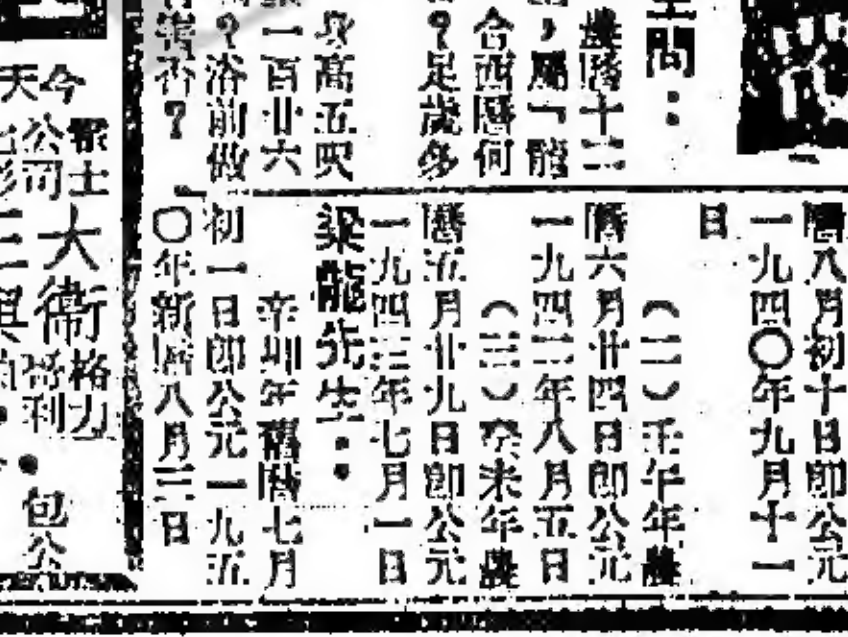 問：
農曆十二
，屬「龍
合西曆何
？足歲多
身高五呎
一百卄六
？浴前做
否？
曆八月初十日即公元
一九四〇年九月十一
日
（二）壬午年農
曆六月廿四日即公元
一九四二年八月五日
（三）癸未年農
曆五月廿九日即公元
一九四三年七月一日
梁龍先生：
辛卯年舊曆七月
初一日即公元一九五
〇年新曆八月三日
今天
公司
大衛
格力
包公